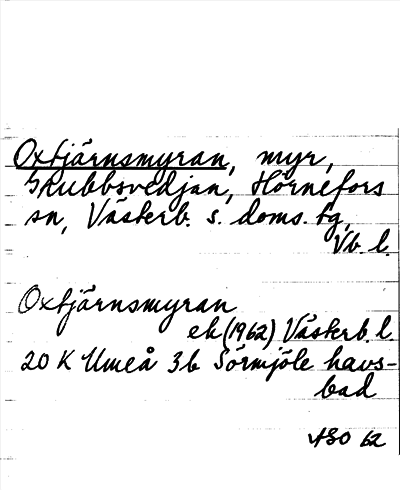 Oxtjärnsmyran, myr,
Skubbsvedjan, Hörnefors
sn, Västerb. s. doms. tg,
Vb. l.
Oxtjärnsmyran
ek (1962) Västerb. l.
20 K Umeå 3b Sörmjöle havs-
bad
ASO 62